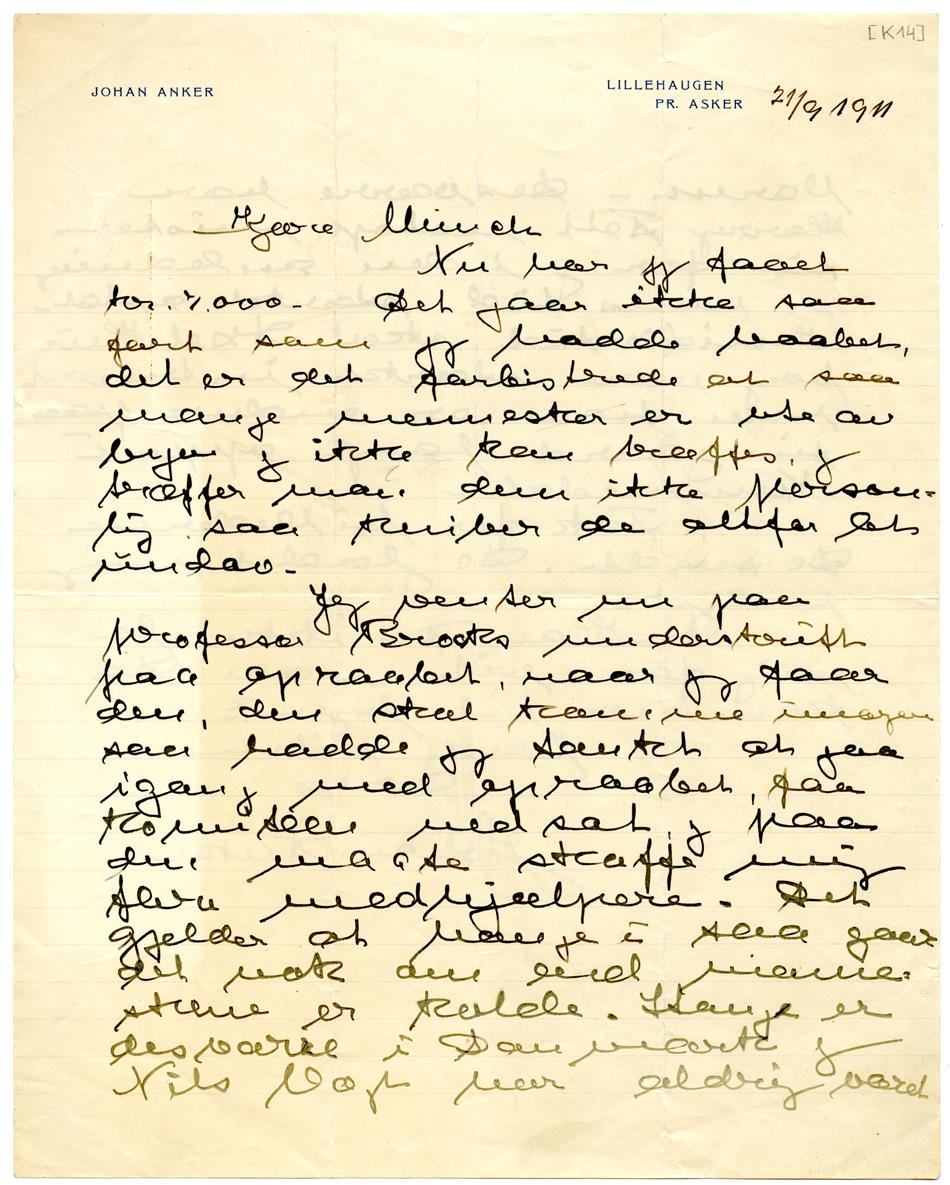 [K14]
JOHAN ANKER
LILLEHAUGEN
PR. ASKER
21/9 1911
Kjære Munch
Nu har jg faaet
kr. 7.000- Det gaar ikke saa
fort som jg hadde haabet,
det er det forbistrede at saa
mange mennesker er ute av
byen g ikke kan træffes, g
træffer man dem ikke person-
lig saa kniber de altfor let
undav-
Jeg venter nu paa
professor Brocks underskrift
paa opraabet, naar jg faar
den, den skal komme imorgen
saa hadde jg tænkt at gaa
igang med opraabet, faa
komiteen nedsat, g paa
den maate skaffe mig
flere medhjælpere. Det
gjelder at hange i saa gaar
det nok om end menne-
skene er kolde. Stang er
desværre i Danmark g
Nils Vogt har aldrig været